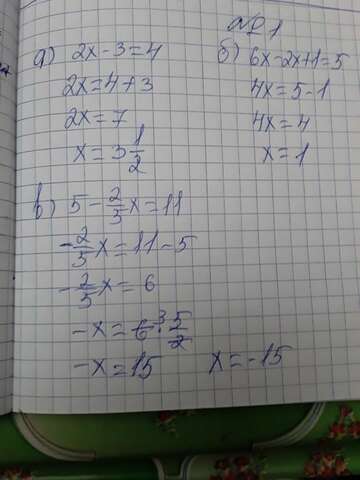 № 1
а) 2x - 3 = 4
2x = 4 + 3
2x = 7
x = 3 1/2
б) 6x - 2x + 1 = 5
4x = 5 - 1
4x = 4
x = 1
в) 5 - 2/5 x = 11
- 2/5 x = 11 - 5
- 2/5 x = 6
- x = 6 3 · 5/2
- x = 15
x = -15